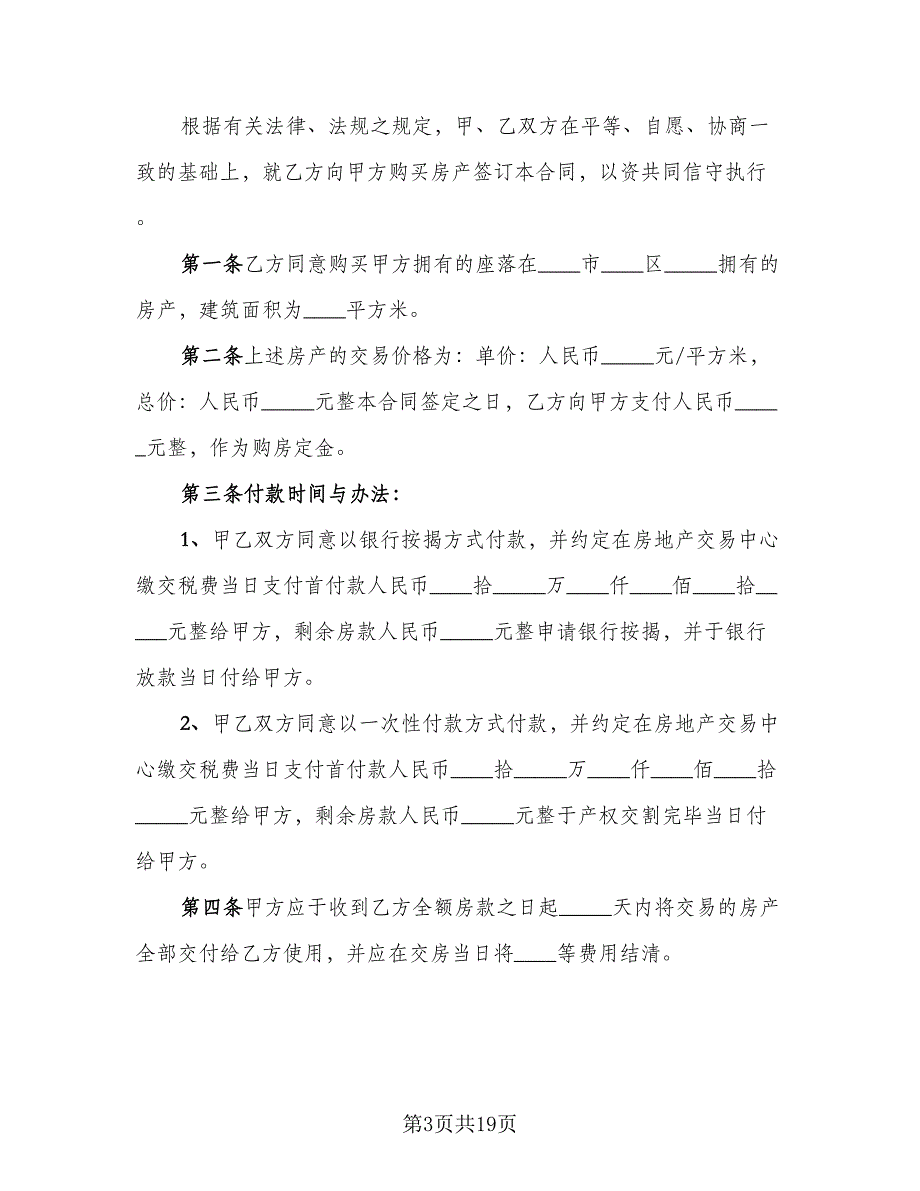 根据有关法律、法规之规定，甲、乙双方在平等、自愿、协商一
致的基础上，就乙方向甲方购买房产签订本合同，以资共同信守执行
。
第一条乙方同意购买甲方拥有的座落在____市____区_____拥有的
房产，建筑面积为____平方米。
第二条上述房产的交易价格为：单价：人民币_____元/平方米，
总价：人民币_____元整本合同签定之日，乙方向甲方支付人民币____
_元整，作为购房定金。
第三条付款时间与办法：
1、甲乙双方同意以银行按揭方式付款，并约定在房地产交易中心
缴交税费当日支付首付款人民币____拾_____万____仟____佰____拾__
___元整给甲方，剩余房款人民币_____元整申请银行按揭，并于银行
放款当日付给甲方。
2、甲乙双方同意以一次性付款方式付款，并约定在房地产交易中
心缴交税费当日支付首付款人民币____拾_____万____仟____佰____拾
_____元整给甲方，剩余房款人民币_____元整于产权交割完毕当日付
给甲方。
第四条甲方应于收到乙方全额房款之日起_____天内将交易的房产
全部交付给乙方使用，并应在交房当日将____等费用结清。
第3页共19页